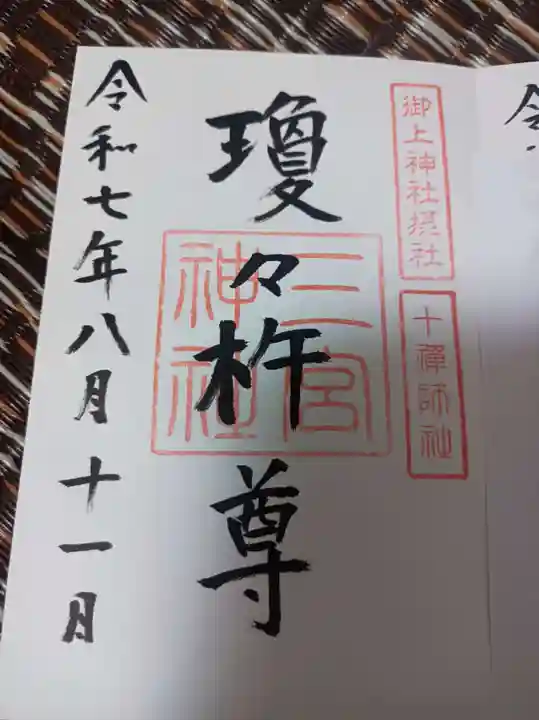 令
御上神社摂社
十禅師社
瓊々杵尊
三宮
神社
令和七年八月十一月